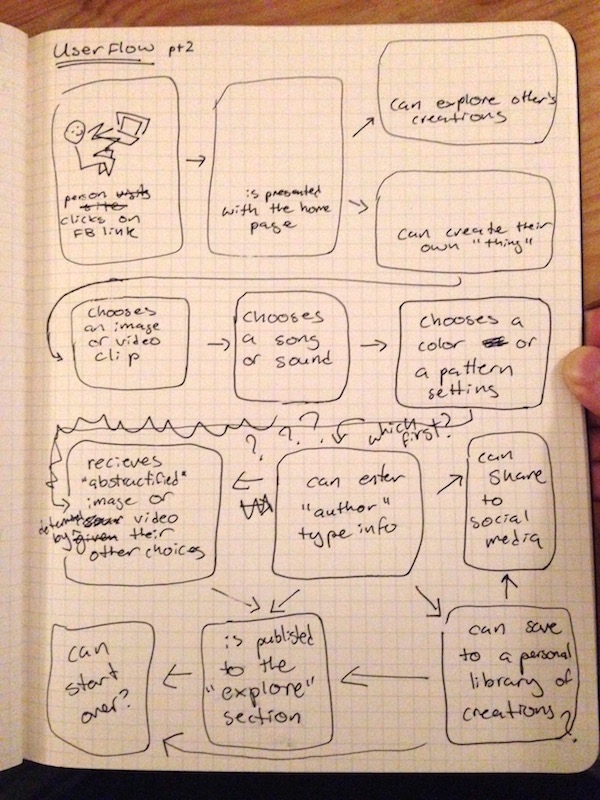 User Flow pt2
person visits
site
clicks on
FB link
is presented
with the home
page
can explore other's
creations
can create their
own "thing"
chooses
an image
or video
clip
chooses
a song
or sound
chooses a
color or
a pattern
setting
? ? ?
which
first?
recieves
"abstractified"
image or
video
by given their
other choices
can enter
"author"
type info
can
share
to
social
media
can
start
over?
is published
to the
"explore"
section
can save
to a personal
library of
creations?